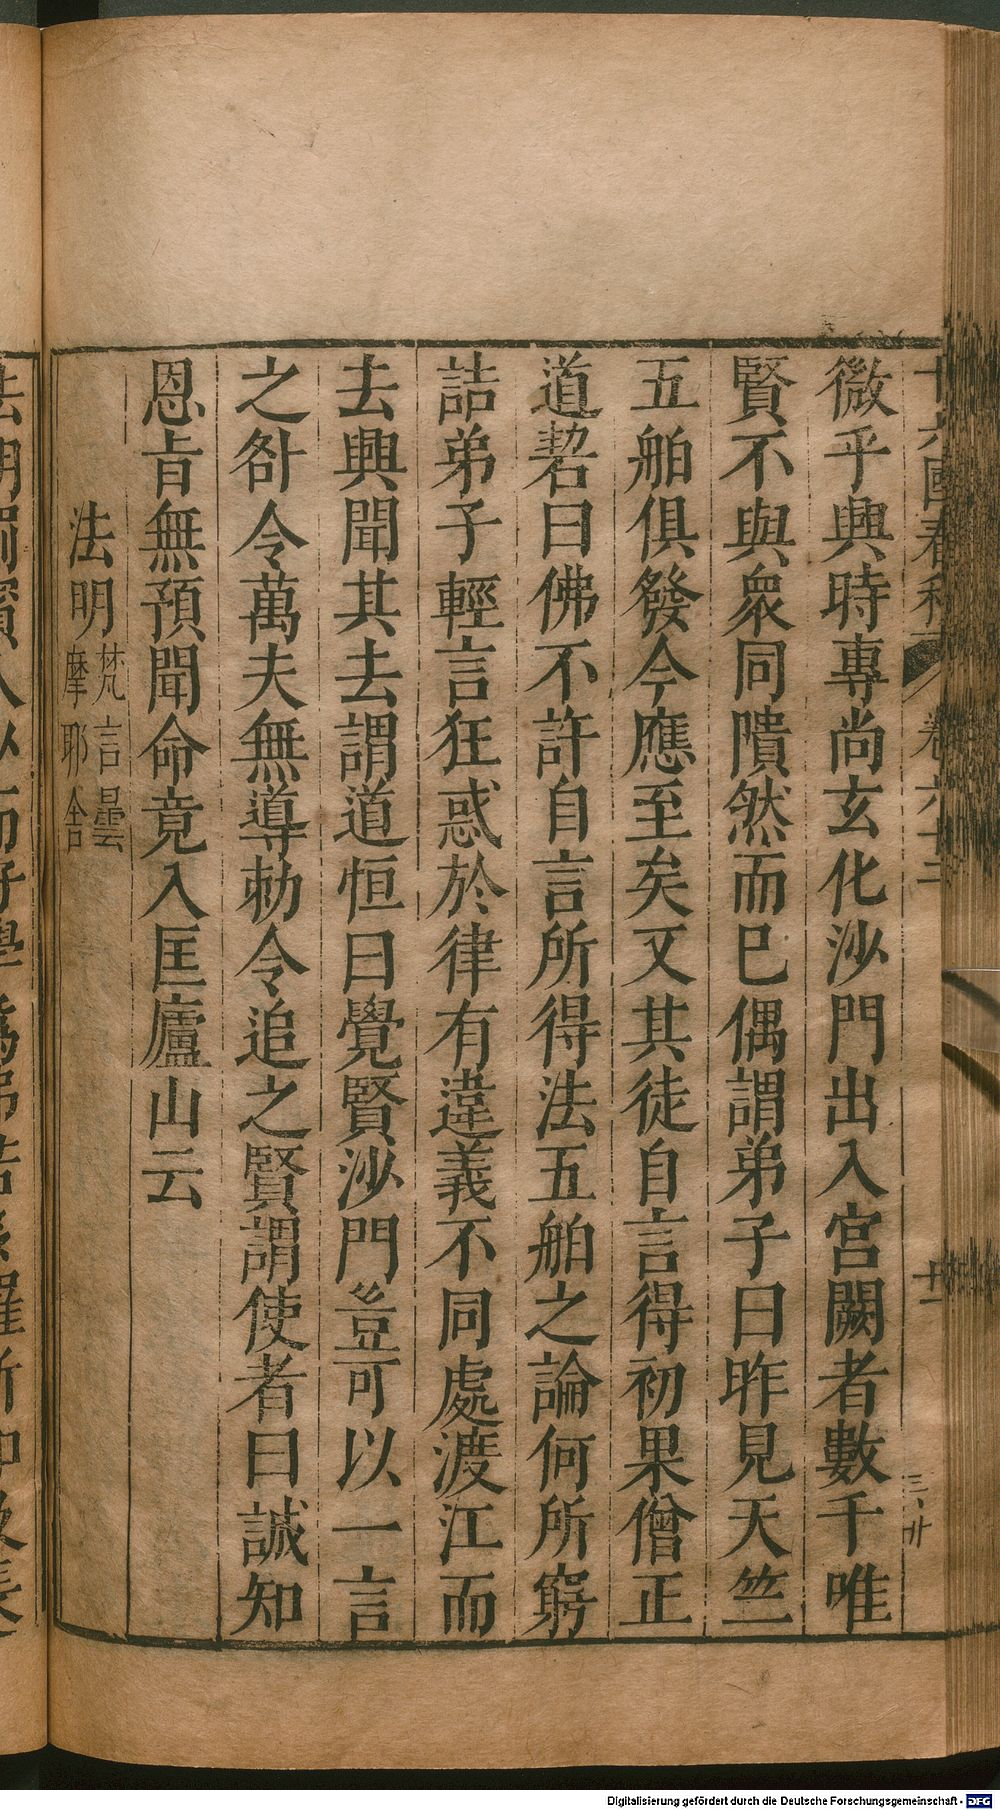 十六國春秋 卷六十二 廿二
微乎興時專尚玄化沙門出入宮闕者數千唯
賢不與衆同隤然而已偶謂弟子曰昨見天竺
五舶俱發今應至矣又其徒自言得初果僧正
道䂮曰佛不許自言所得法五舶之論何所窮
詰弟子輕言狂惑於律有違義不同處渡江而
去興聞其去謂道恒曰覺賢沙門豈可以一言
之咎令萬夫無導勅令追之賢謂使者曰誠知
恩旨無預聞命竟入匡廬山云
法明梵言曇摩耶舍
Digitalisierung gefördert durch die Deutsche Forschungsgemeinschaft - DFG